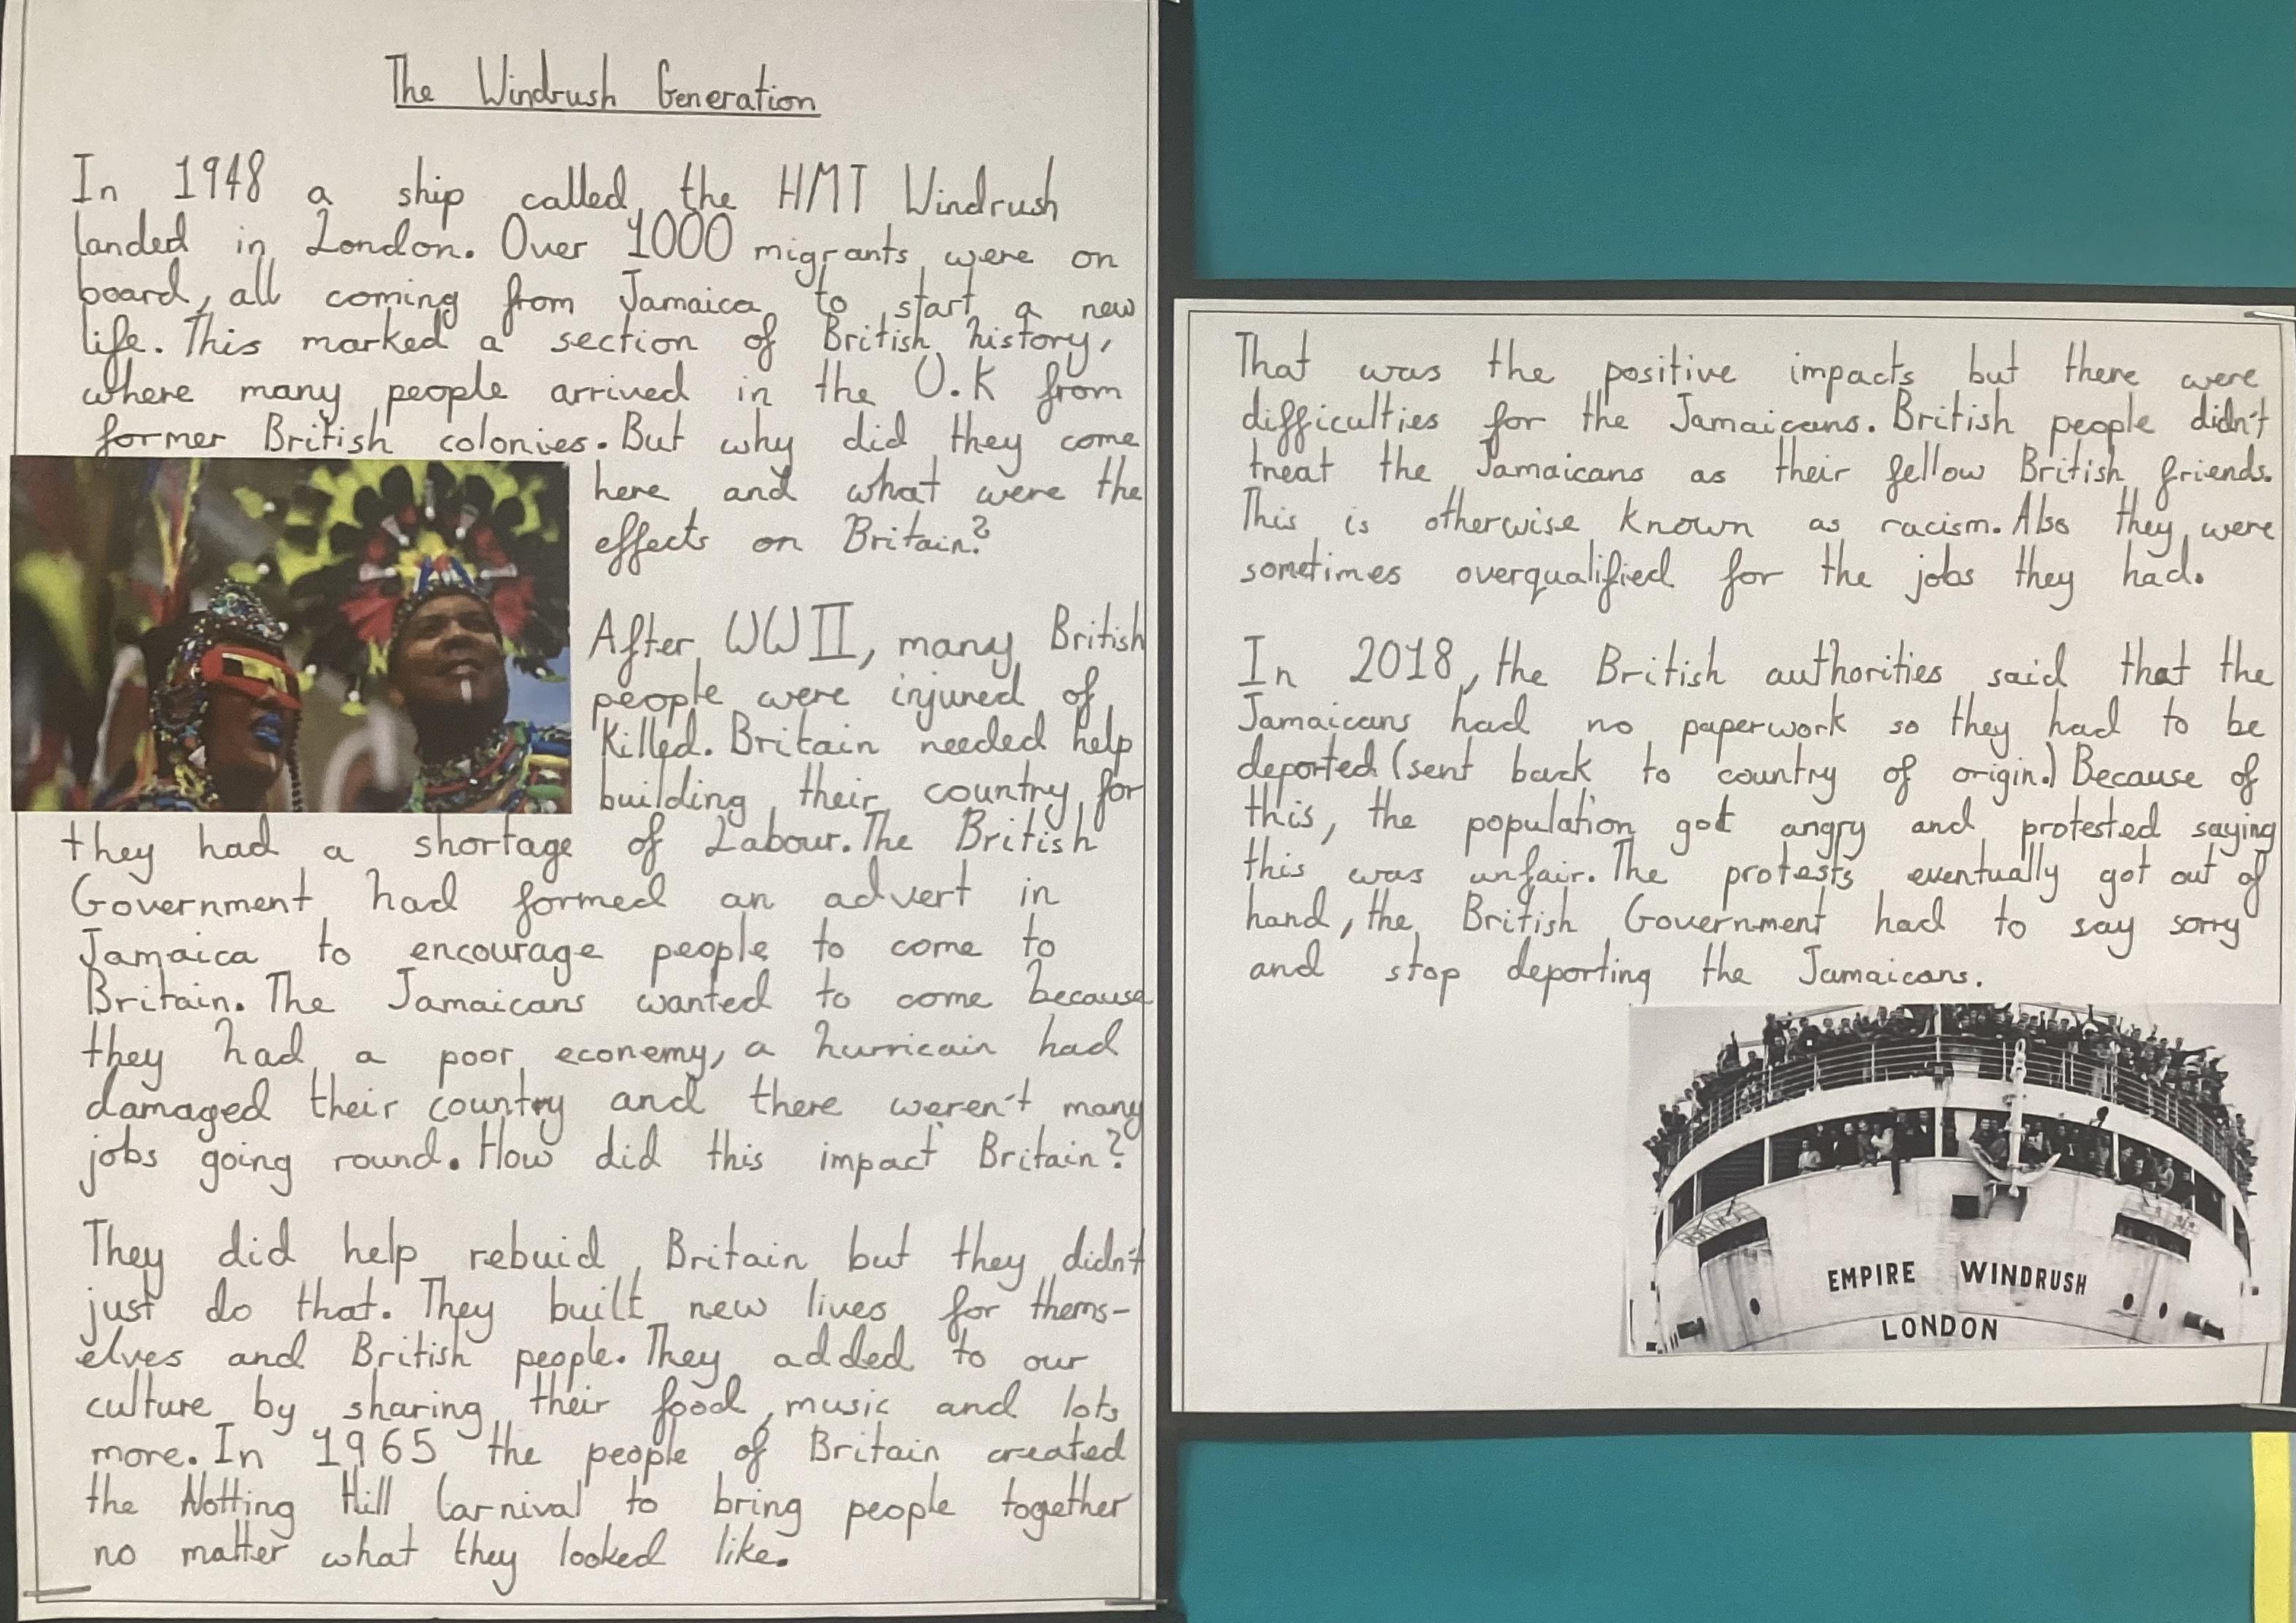 The Windrush Generation
In 1948 a ship called the HMT Windrush
landed in London. Over 1000 migrants were on
board, all coming from Jamaica to start a new
life. This marked a section of British history,
where many people arrived in the U.K from
former British colonies. But why did they come
here and what were the
effects on Britain?
After WWII, many British
people were injured of
killed. Britain needed help
building their country for
they had a shortage of Labour. The British
Government had formed an advert in
Jamaica to encourage people to come to
Britain. The Jamaicans wanted to come because
they had a poor economy, a hurricain had
damaged their country and there weren't many
jobs going round. How did this impact Britain?
They did help rebuid Britain but they didn't
just do that. They built new lives for thems-
elves and British people. They added to our
culture by sharing their food, music and lots
more. In 1965 the people of Britain created
the Notting Hill Carnival to bring people together
no matter what they looked like.
That was the positive impacts but there were
difficulties for the Jamaicans. British people didn't
treat the Jamaicans as their fellow British friends.
This is otherwise known as racism. Also they were
sometimes overqualified for the jobs they had.
In 2018, the British authorities said that the
Jamaicans had no paperwork so they had to be
deported (sent back to country of origin.) Because of
this, the population got angry and protested saying
this was unfair. The protests eventually got out of
hand, the British Government had to say sorry
and stop deporting the Jamaicans.
EMPIRE WINDRUSH
LONDON